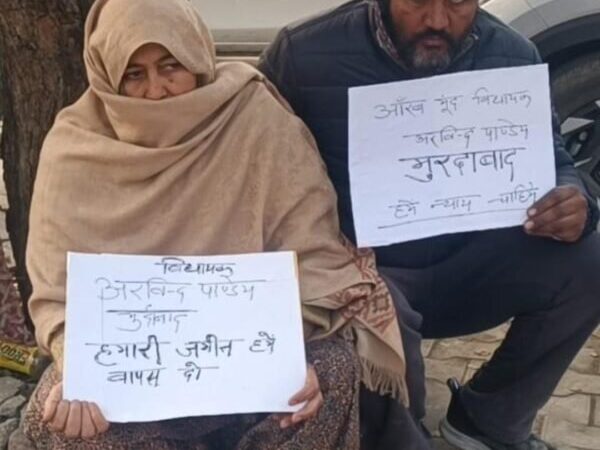 विधायक
अरविन्द पाण्डेय
मुर्दाबाद
हमारी जमीन हमें
वापस दो
आँख मूंद विधायक
अरविन्द पाण्डेय
मुरदाबाद
हमें न्याय चाहिये